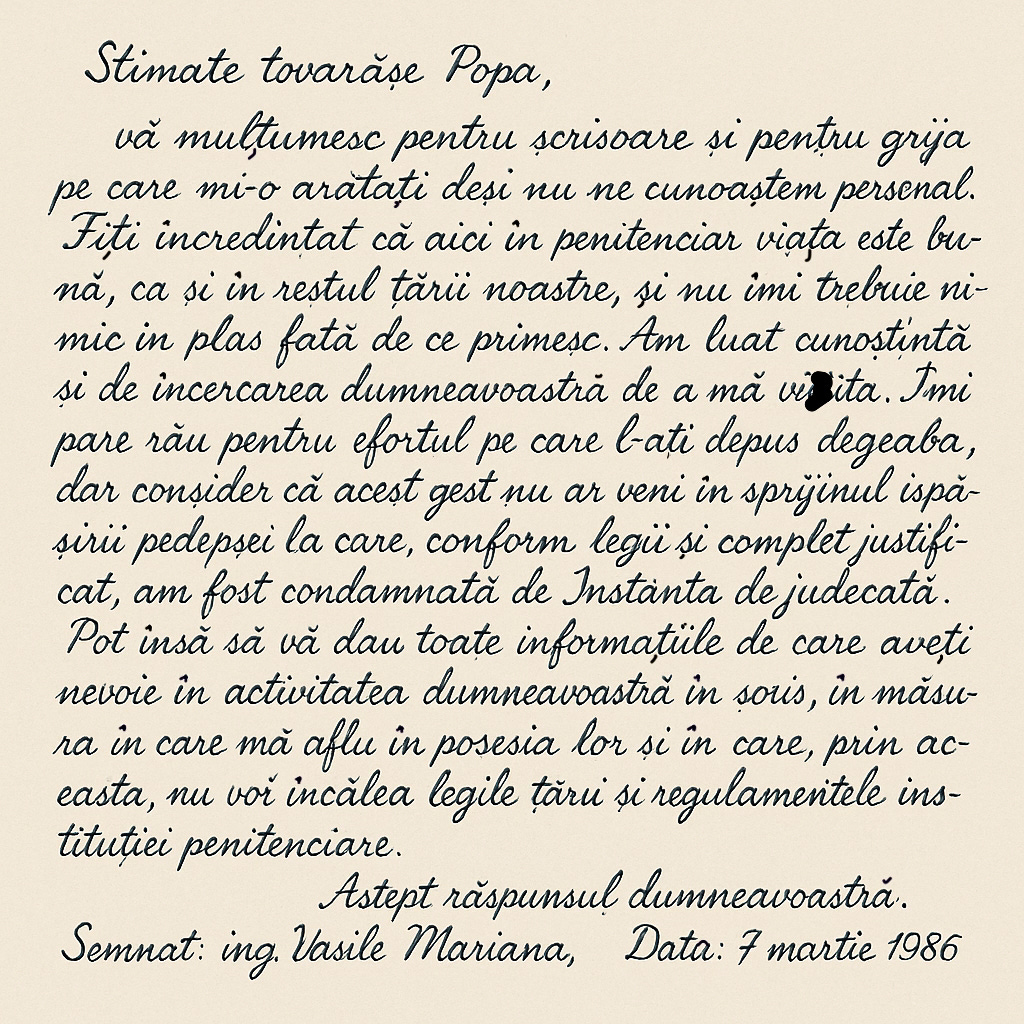 Stimate tovarășe Popa,
vă mulțumesc pentru scrisoare și pentru grija
pe care mi-o arătați deși nu ne cunoaștem personal.
Fiți încredințat că aici în penitenciar viața este bu-
nă, ca și în restul țării noastre, și nu îmi trebuie ni-
mic in plas fată de ce primesc. Am luat cunoștintă
și de încercarea dumneavoastră de a mă. Îmi
pare rău pentru efortul pe care l-ați depus degeaba,
dar consider că acest gest nu ar veni în sprijinul ispă-
șirii pedepsei la care, conform legii și complet justifi-
cat, am fost condamnată de Instanta de judecată.
Pot însă să vă dau toate informațiile de care aveți
nevoie în activitatea dumneavoastră în, în măsu-
ra în care mă aflu în posesia lor și în care, prin ac-
easta, nu voi încălea legile țării și regulamentele ins-
tituției penitenciare.
Astept răspunsul dumneavoastră.
Semnat: ing. Vasile Mariana, Data: 7 martie 1986